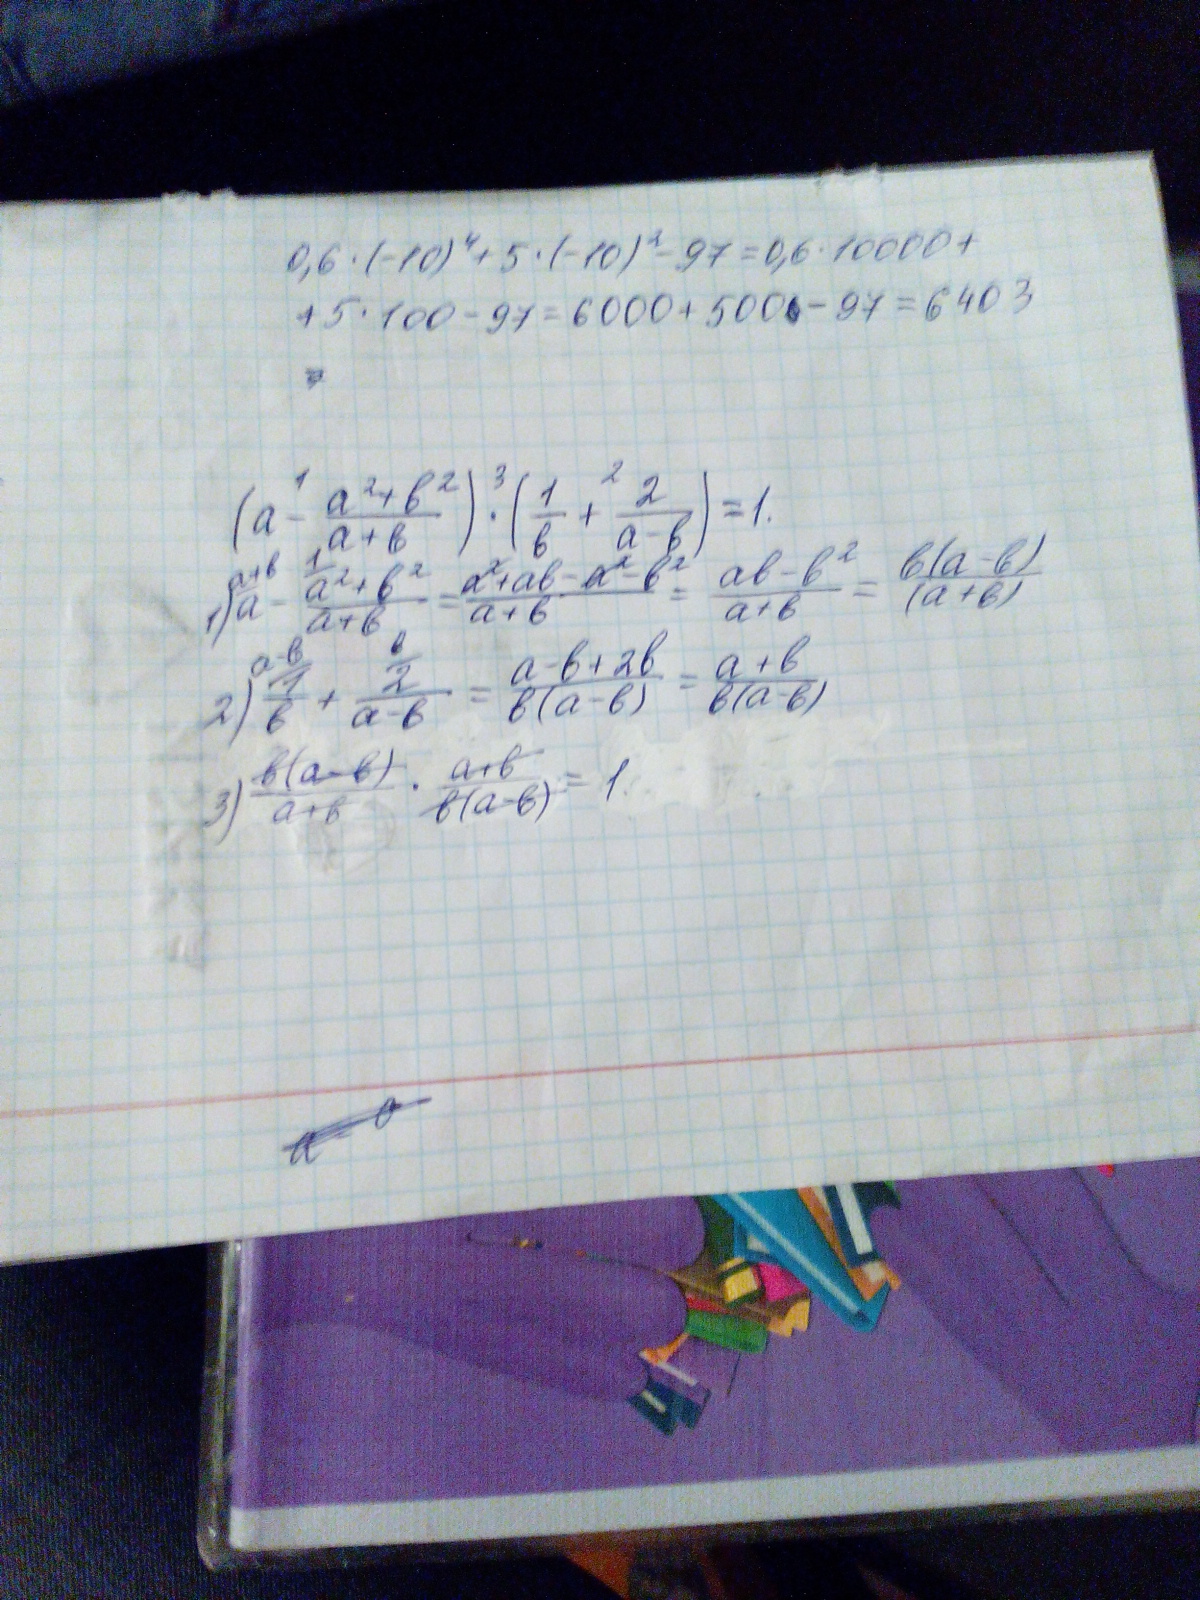 0,6·(-10)⁴+5·(-10)²-97=0,6·10000+
+5·100-97=6000+500-97=6403
=
(a -¹ (a²+b²)/(a+b)) ·³ (1/b +² 2/(a-b)) = 1.
1) a - (a²+b²)/(a+b) = (a²+ab-a²-b²)/(a+b) = (ab-b²)/(a+b) = b(a-b)/(a+b)
2) 1/b + 2/(a-b) = (a-b+2b)/(b(a-b)) = (a+b)/(b(a-b))
3) b(a-b)/(a+b) · (a+b)/(b(a-b)) = 1.